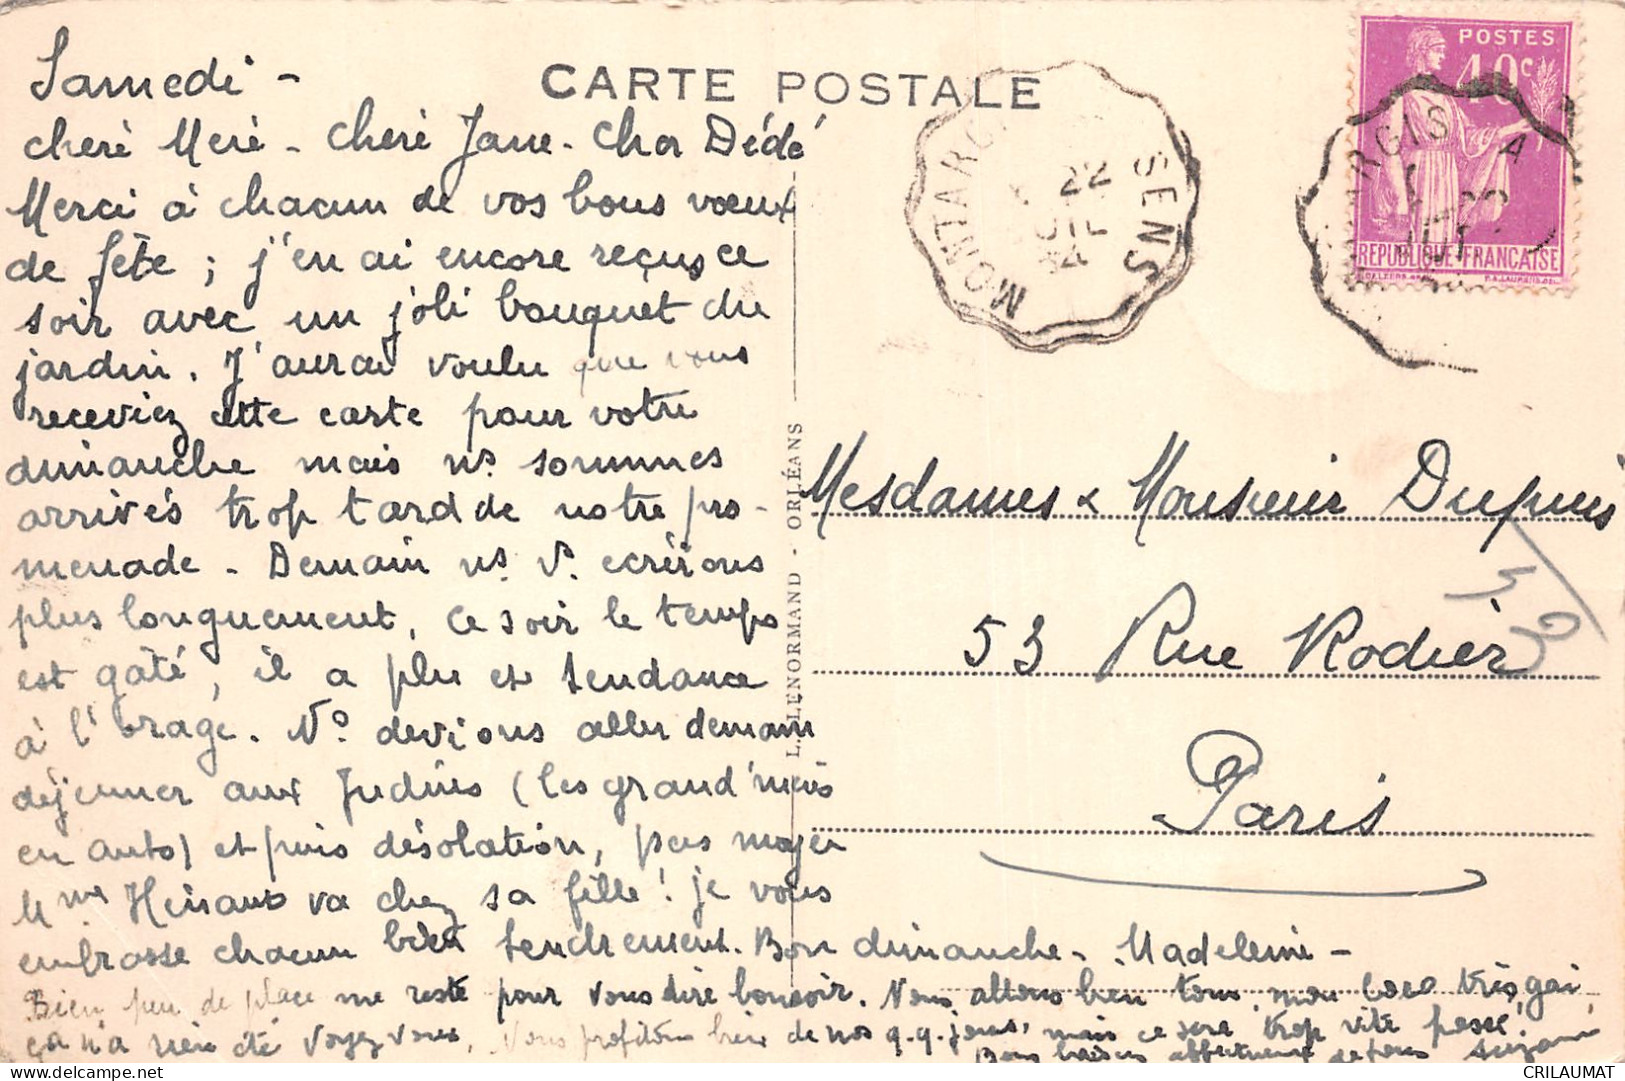 Samedi -
CARTE POSTALE
cherè Merè - Cherè Jane - Cher Dédé
Merci à chacun de vos bons vœux
de fête ; j'en ai encore reçus ce
soir avec un joli bouquet du
jardin. J'aurai voulu que vous
receviez cette carte pour votre
dimanche mais ns sommes
arrivés trop tard de notre pro-
menade - Demain ns. v. ecrirons
plus longuement, ce soir le temps
est gâté, il a plu et tendance
à l'orage. No devions aller demain
déjeuner aux Judins (les grand'mères
en auto) et puis désolation, pas moyen
Mme Heisaut va chez sa fille! je vous
embrasse chacun bien tendrement. Bon dimanche - Madeleine -
Bien peu de place me reste pour vous dire bonsoir. Nous allons bien tous, mon coco très gai,
ça n'a rien été voyez vous. Nous profitons bien de nos q.q. jours, mais ce sera trop vite passé.
Bons baisers affectueux de tous Suzanne
L. LENORMAND - ORLÉANS
MONTARG
SENS
22
JUIL
34
POSTES
40c
ARGIS A
22
REPUBLIQUE FRANÇAISE
Mesdames & Monsieur Dupuis
53 Rue Rodier
Paris
CRILAUMAT